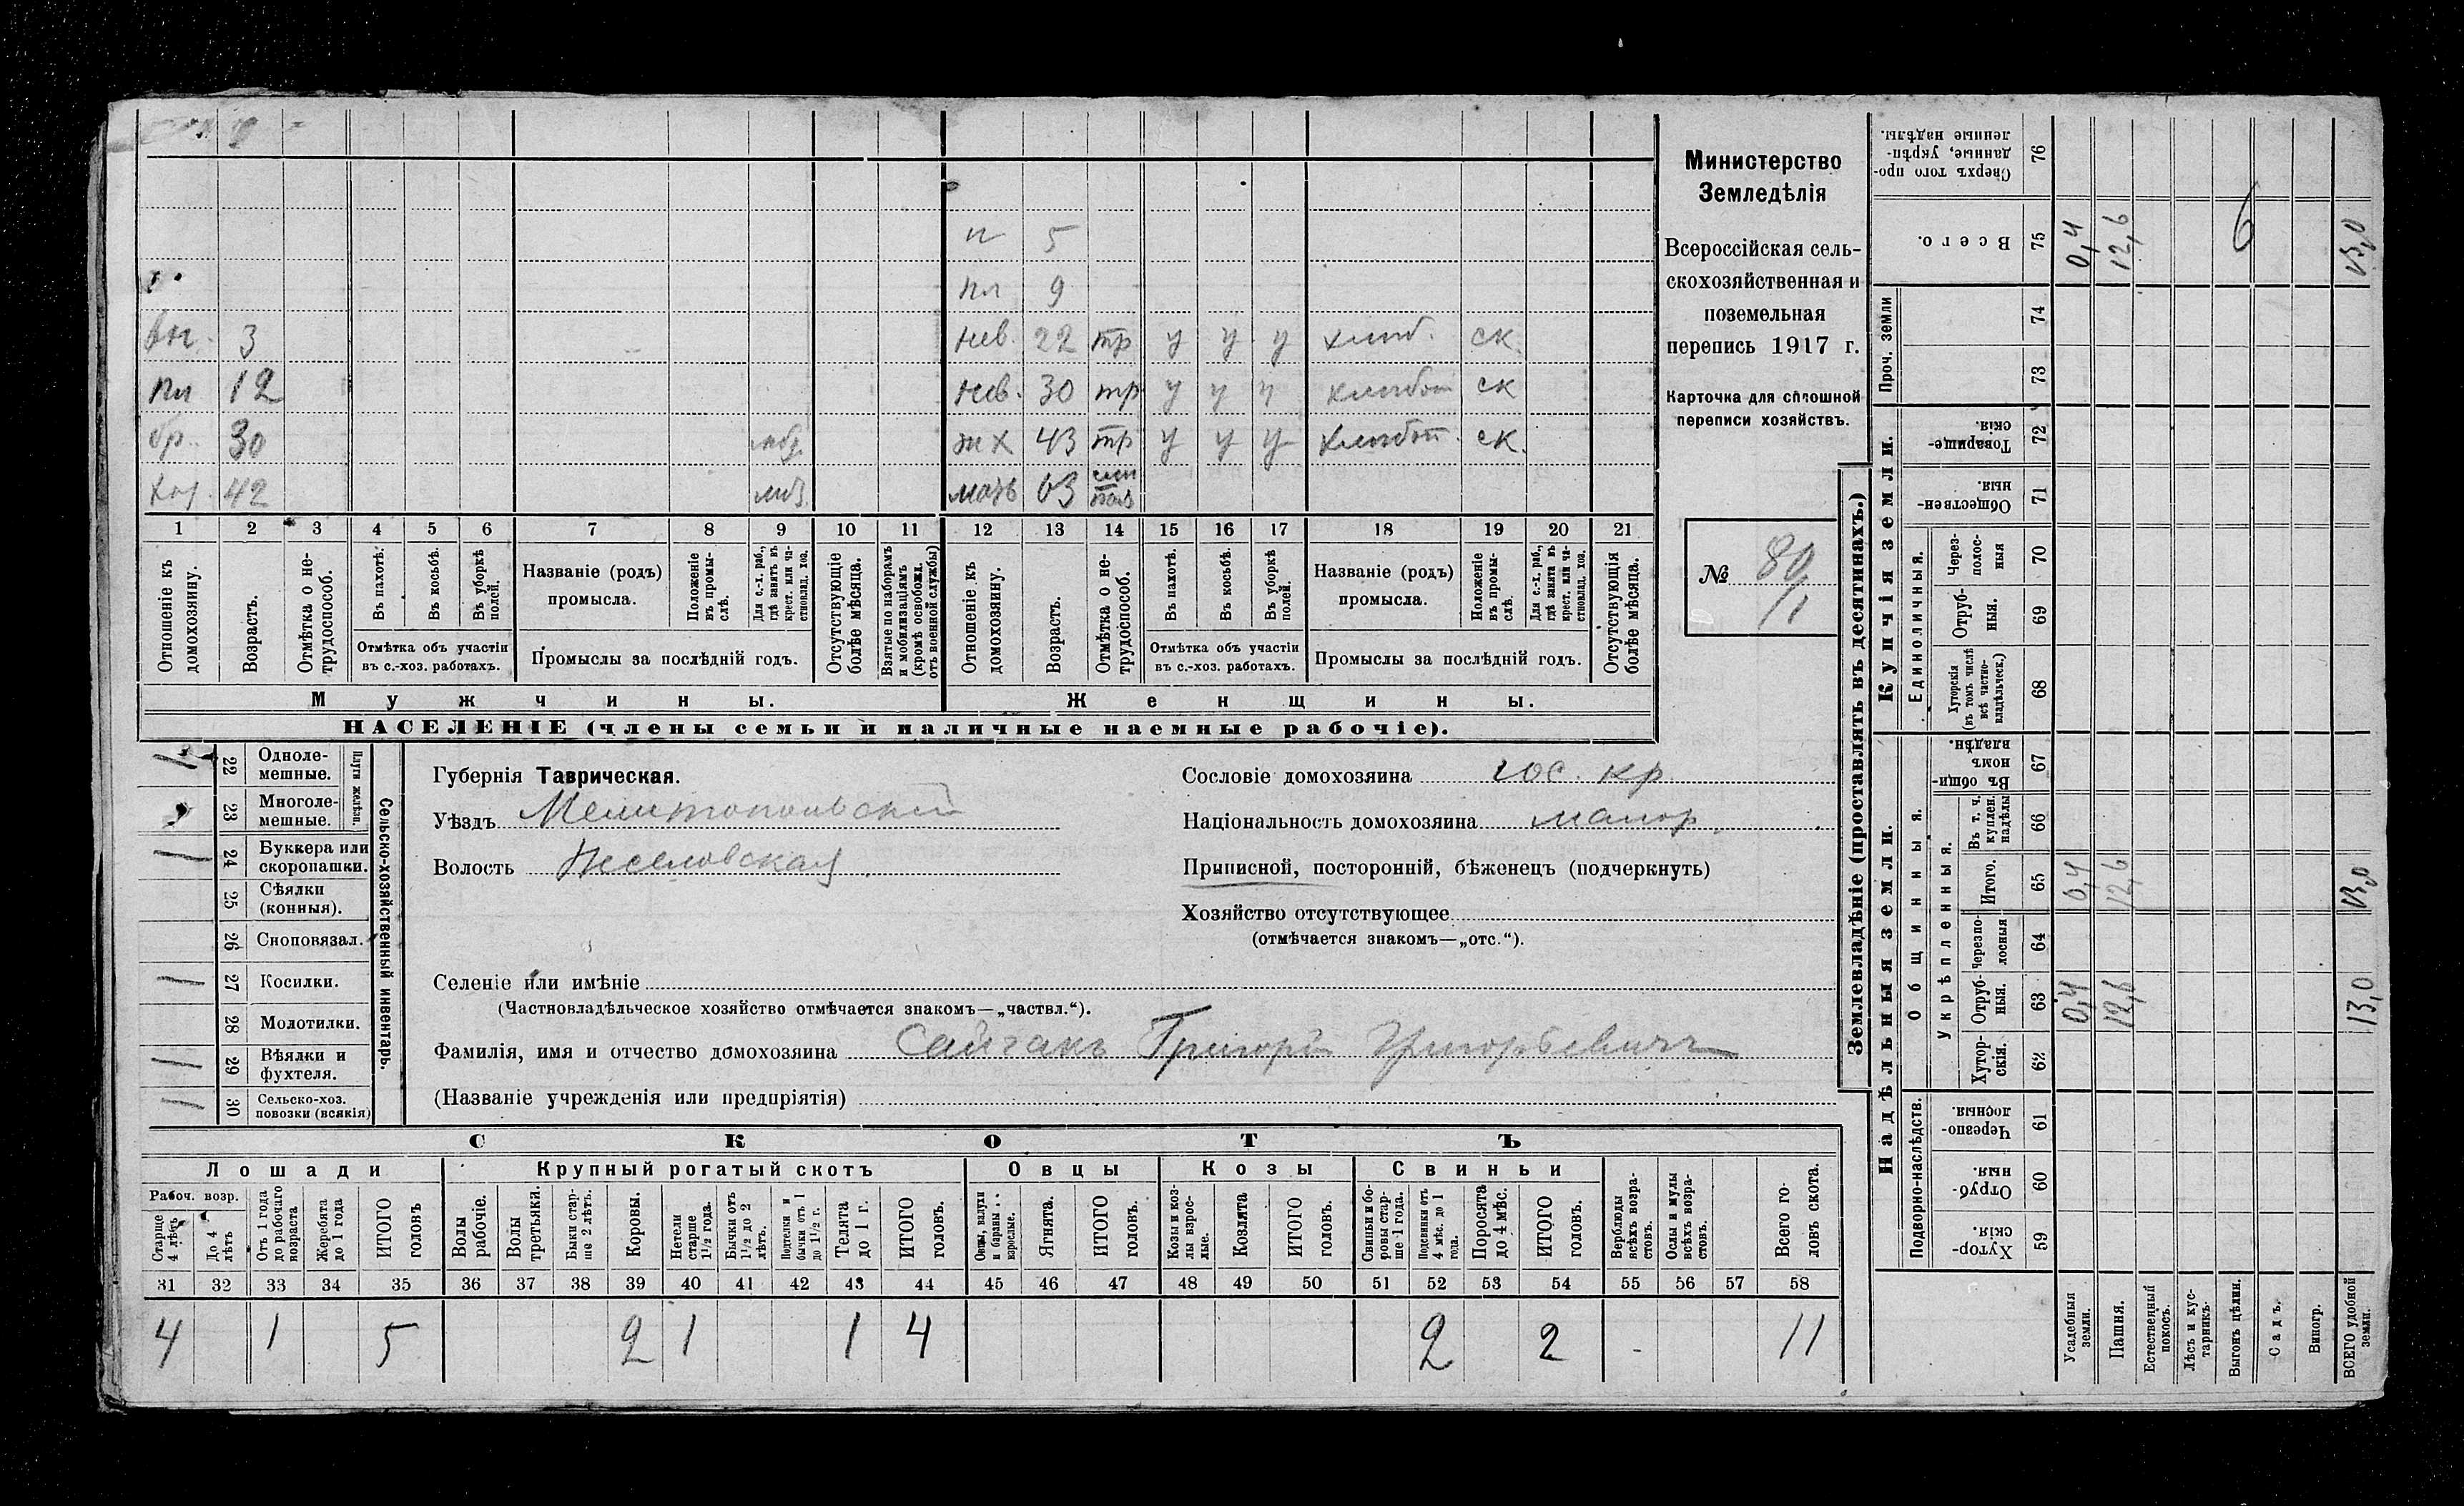 п 5
пл 9
вн. 3 нев. 22 тр у у у хлиб. ск.
пл 12 нев. 30 тр у у у хлибоп ск
бр. 30 ж х 43 тр у у у хлибоп. ск.
хоз. 42 мать 63
1 2 3 4 5 6 7 8 9 10 11 12 13 14 15 16 17 18 19 20 21
Отношеніе къ домохозяину.
Возрастъ.
Отмѣтка о не-трудоспособ.
Въ пахотѣ.
Въ косьбѣ.
Въ уборкѣ полей.
Отмѣтка объ участіи
въ с.-хоз. работахъ.
Названіе (родъ)
промысла.
Положеніе въ промы-слѣ.
Для с.-х. раб., гдѣ занятъ въ крест. или ча-стновлад. хоз.
Промыслы за послѣдній годъ.
Отсутствующіе болѣе мѣсяца.
Взятые по наборамъ и мобилизаціямъ (кромѣ освобожд. отъ военной службы)
Отношеніе къ домохозяину.
Возрастъ.
Отмѣтка о не-трудоспособ.
Въ пахотѣ.
Въ косьбѣ.
Въ уборкѣ полей.
Отмѣтка объ участіи
въ с.-хоз. работахъ.
Названіе (родъ)
промысла.
Положеніе въ промы-слѣ.
Для с.-х. раб., гдѣ занята въ крест. или ча-стновлад. хоз.
Промыслы за послѣдній годъ.
Отсутствующія болѣе мѣсяца.
Мужчины.
Женщины.
НАСЕЛЕНІЕ (члены семьи и наличные наемные рабочіе).
Министерство
Земледѣлія
Всероссійская сель-
скохозяйственная и
поземельная
перепись 1917 г.
Карточка для сплошной
переписи хозяйствъ.
№ 80/1
22 Одноле-мешные.
23 Многоле-мешные.
Плуги желѣзн.
24 Буккера или скоропашки.
25 Сѣялки (конныя).
26 Сноповязал.
27 Косилки.
28 Молотилки.
29 Вѣялки и фухтеля.
30 Сельско-хоз. повозки (всякія)
Сельско-хозяйственный инвентарь.
Губернія Таврическая.
Уѣздъ Мелитопольскій
Волость Веселовская
Сословіе домохозяина гос. кр.
Національность домохозяина малор.
Приписной, посторонній, бѣженецъ (подчеркнуть)
Хозяйство отсутствующее
(отмѣчается знакомъ—„отс.“).
Селеніе или имѣніе
(Частновладѣльческое хозяйство отмѣчается знакомъ—„частвл.“).
Фамилія, имя и отчество домохозяина Сайгакъ Григорій Григорьевичъ
(Названіе учрежденія или предпріятія)
СКОТЪ
Лошади
Крупный рогатый скотъ
Овцы
Козы
Свиньи
Рабоч. возр.
Старше 4 лѣтъ
До 4 лѣтъ
Отъ 1 года до рабочаго возраста
Жеребята до 1 года
ИТОГО головъ
Волы рабочіе.
Волы третьяки.
Быки стар-ше 2 лѣтъ.
Коровы.
Нетели старше 1½ года.
Бычки отъ 1½ до 2 лѣтъ.
Подтелки и бычки отъ 1 до 1½ г.
Телята до 1 г.
ИТОГО головъ.
Овцы, валухи и бараны взрослые.
Ягнята.
ИТОГО головъ.
Козы и коз-лы взрос-лые.
Козлята
ИТОГО головъ.
Свиньи и бо-ровы стар-ше 1 года.
Подсвинки отъ 4 мѣс. до 1 года.
Поросята до 4 мѣс.
ИТОГО головъ.
Верблюды всѣхъ возра-стовъ.
Ослы и мулы всѣхъ возра-стовъ.
Всего го-ловъ скота.
31 32 33 34 35 36 37 38 39 40 41 42 43 44 45 46 47 48 49 50 51 52 53 54 55 56 57 58
4 1 5 2 1 1 4 2 2 11
Землевладѣніе (проставлять въ десятинахъ.)
Надѣльныя земли.
Купчія земли.
Проч. земли
Подворно-наслѣдств.
Общинныя.
Укрѣпленныя.
Единоличныя.
76 Сверхъ того про-данные, укрѣп-ленные надѣлы.
75 Всего. 0,4 12,6 6 13,0
74
73
72 Товарище-скія.
71 Обществен-ныя.
70 Через-полос-ныя
69 Отруб-ныя.
68 Хуторскія (въ томъ числѣ всѣ частно-владѣльческ.)
67 Въ общи-номъ владѣн.
66 Въ т. ч. куплен. надѣлы
65 Итого. 0,4 12,6 13,0
64 Черезпо-лосныя
63 Отруб-ныя. 0,4 12,6 13,0
62 Хутор-скія.
61 Черезпо-лосныя.
60 Отруб-ныя.
59 Хутор-скія.
Усадебныя земли.
Пашня.
Естественный покосъ.
Лѣсъ и кус-тарникъ.
Выгонъ цѣлин.
Садъ.
Виногр.
ВСЕГО удобной земли.